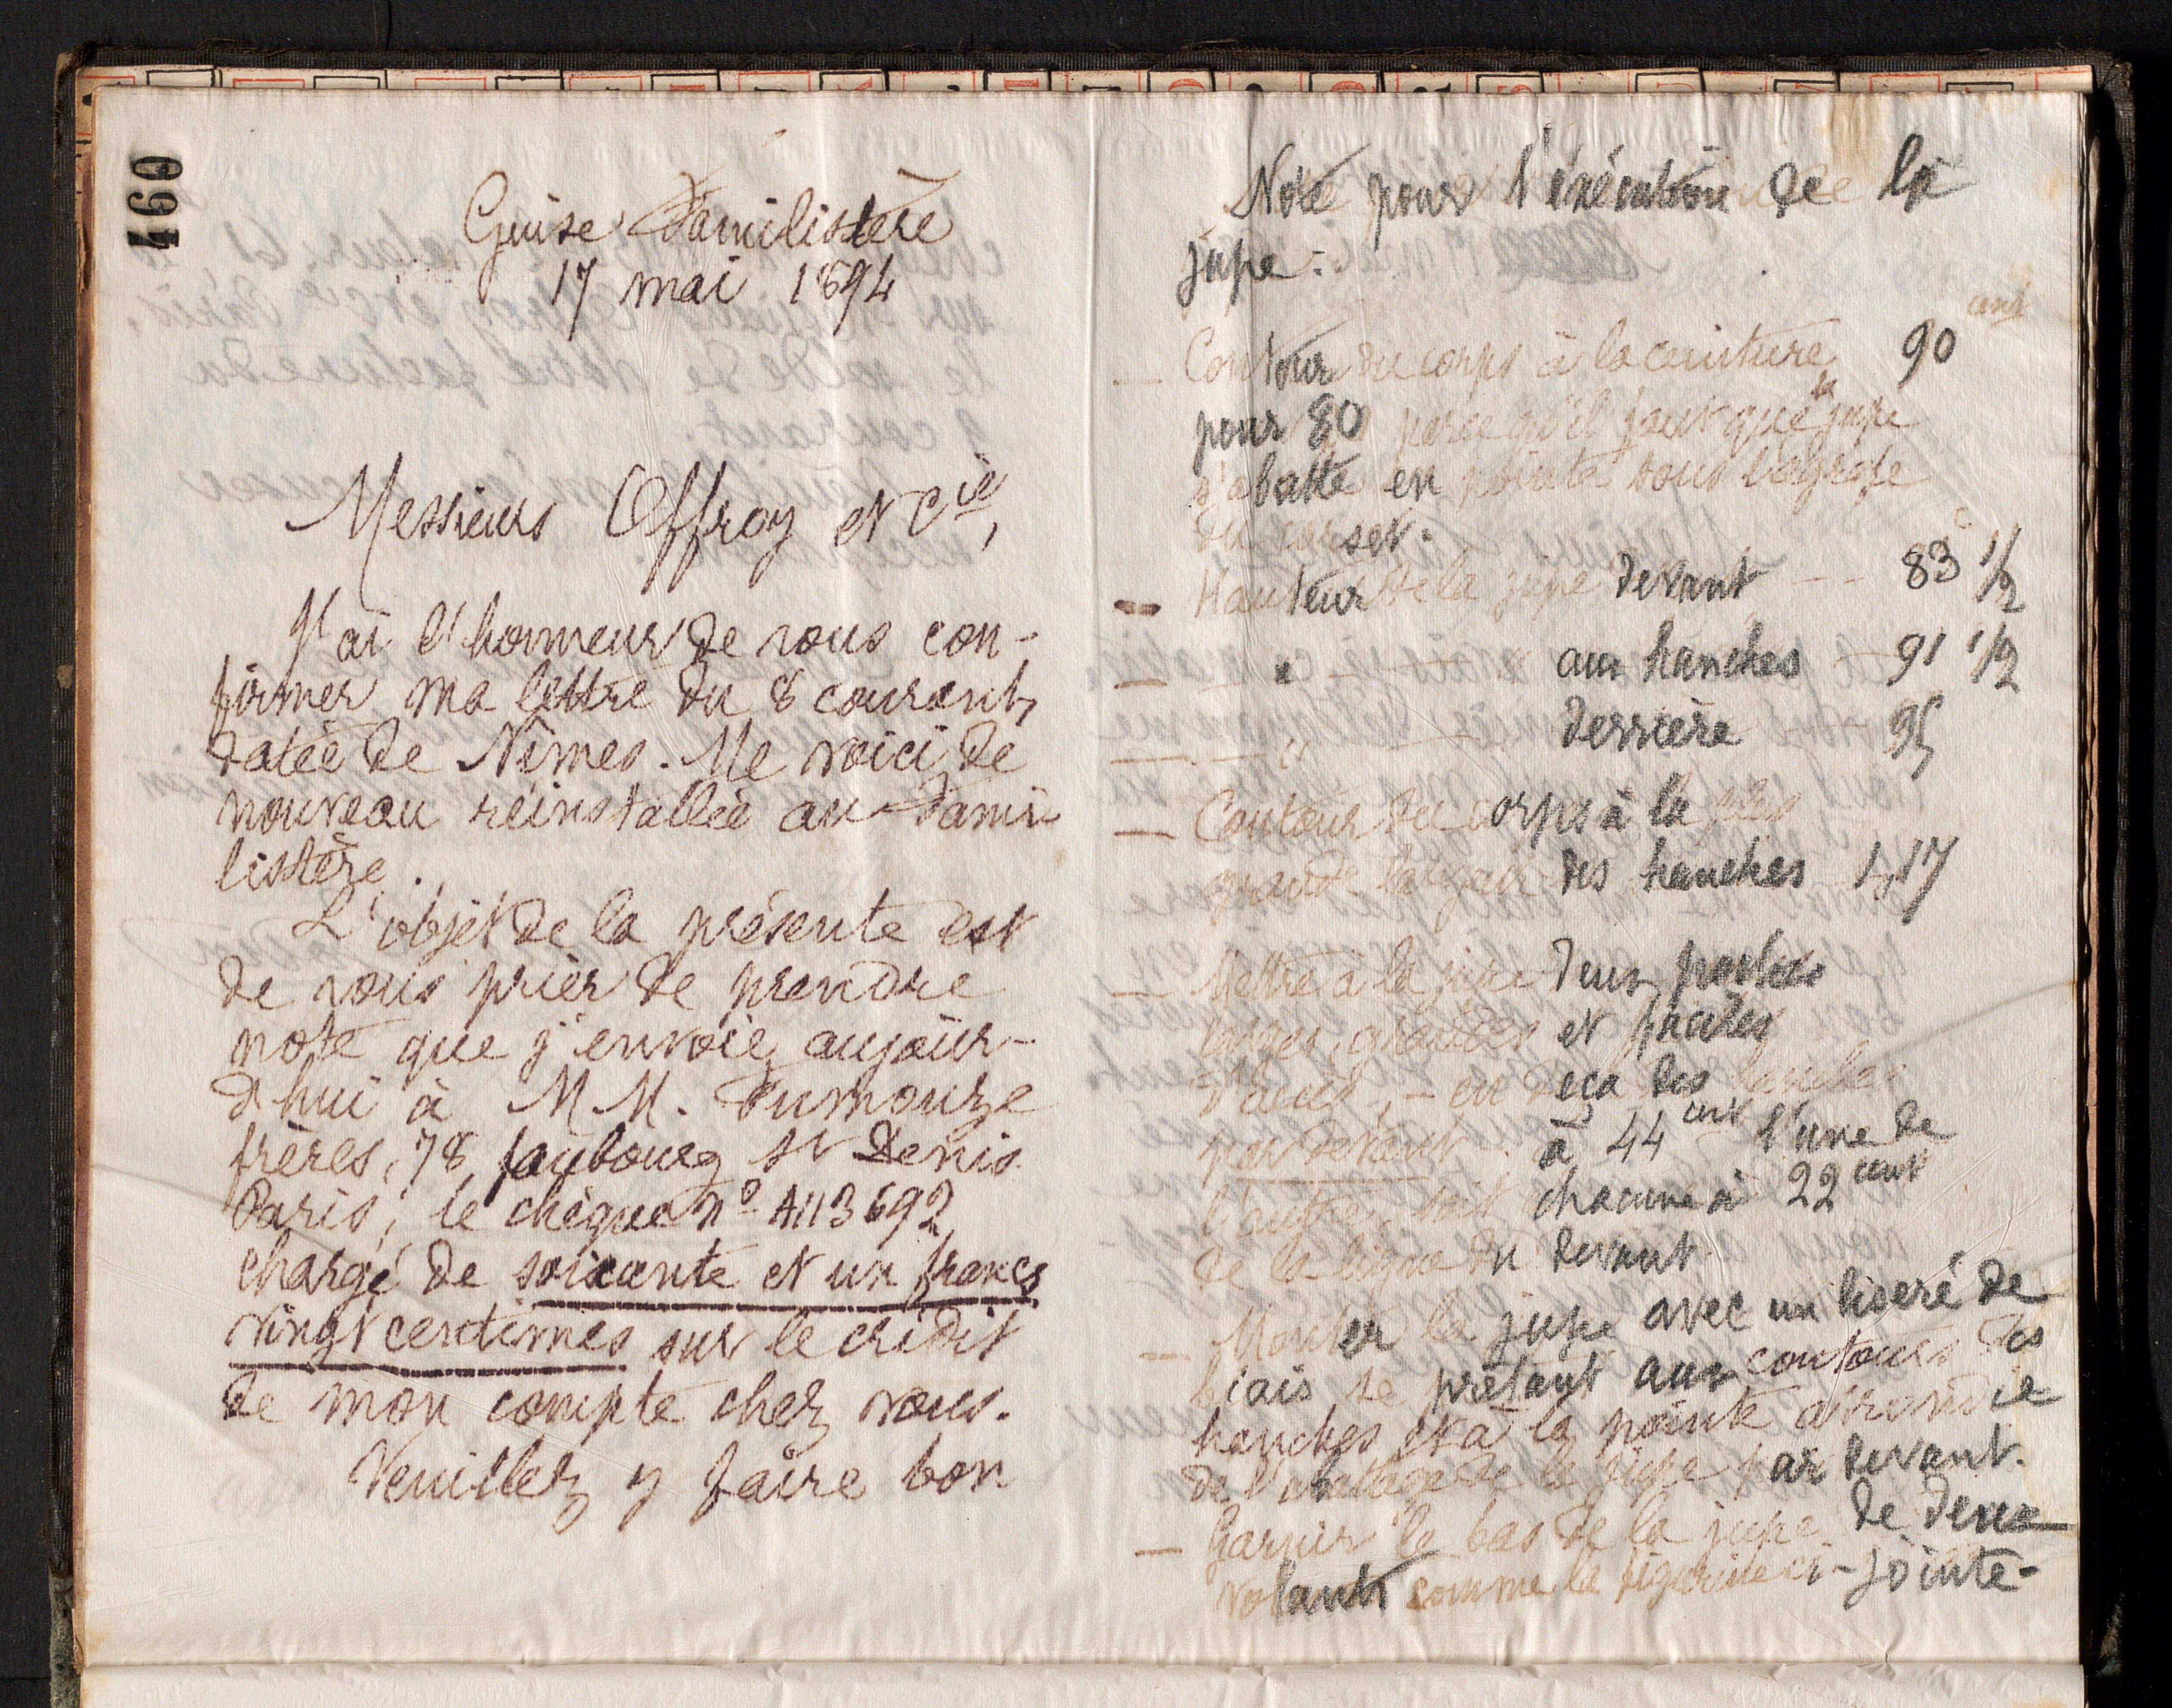 460
Guise Familistère
17 mai 1894
Messieurs Offroy et Cie,
J'ai l'honneur de vous con-
firmer ma lettre du 8 courant,
datée de Nîmes. Me voici de
nouveau réinstallée au Fami-
listère.
L'objet de la présente est
de vous prier de prendre
note que j'envoie aujour-
d'hui à M.M. Fumouze
frères, 78, faubourg St Denis
Paris, le chèque no A113692
chargé de soixante et un francs
vingt centimes sur le crédit
de mon compte chez vous.
Veuillez y faire bon
Note pour l'exécution de la
jupe :
cent
— Contour du corps à la ceinture 90
pour 80 parce qu'il faut que la jupe
s'abatte en pointe sous l'agrafe
du corset.
— Hauteur de la jupe devant -- 83 c 1/2
— " — aux hanches — 91 1/2
— " — derrière — 95
— Contour du corps à la plus
grande largeur des hanches 1,17
— Mettre à la jupe deux poches
larges, grandes et faciles
d'accès, - en deça des hanches
par devant à 44 cent l'une de
l'autre, soit chacune à 22 cent
de la ligne du devant.
— Monter la jupe avec un liseré de
biais se prêtant aux contours des
hanches et à la pointe arrondie
de l'abattage de la jupe par devant.
— Garnir le bas de la jupe de deux
volants comme la figurine ci-jointe-